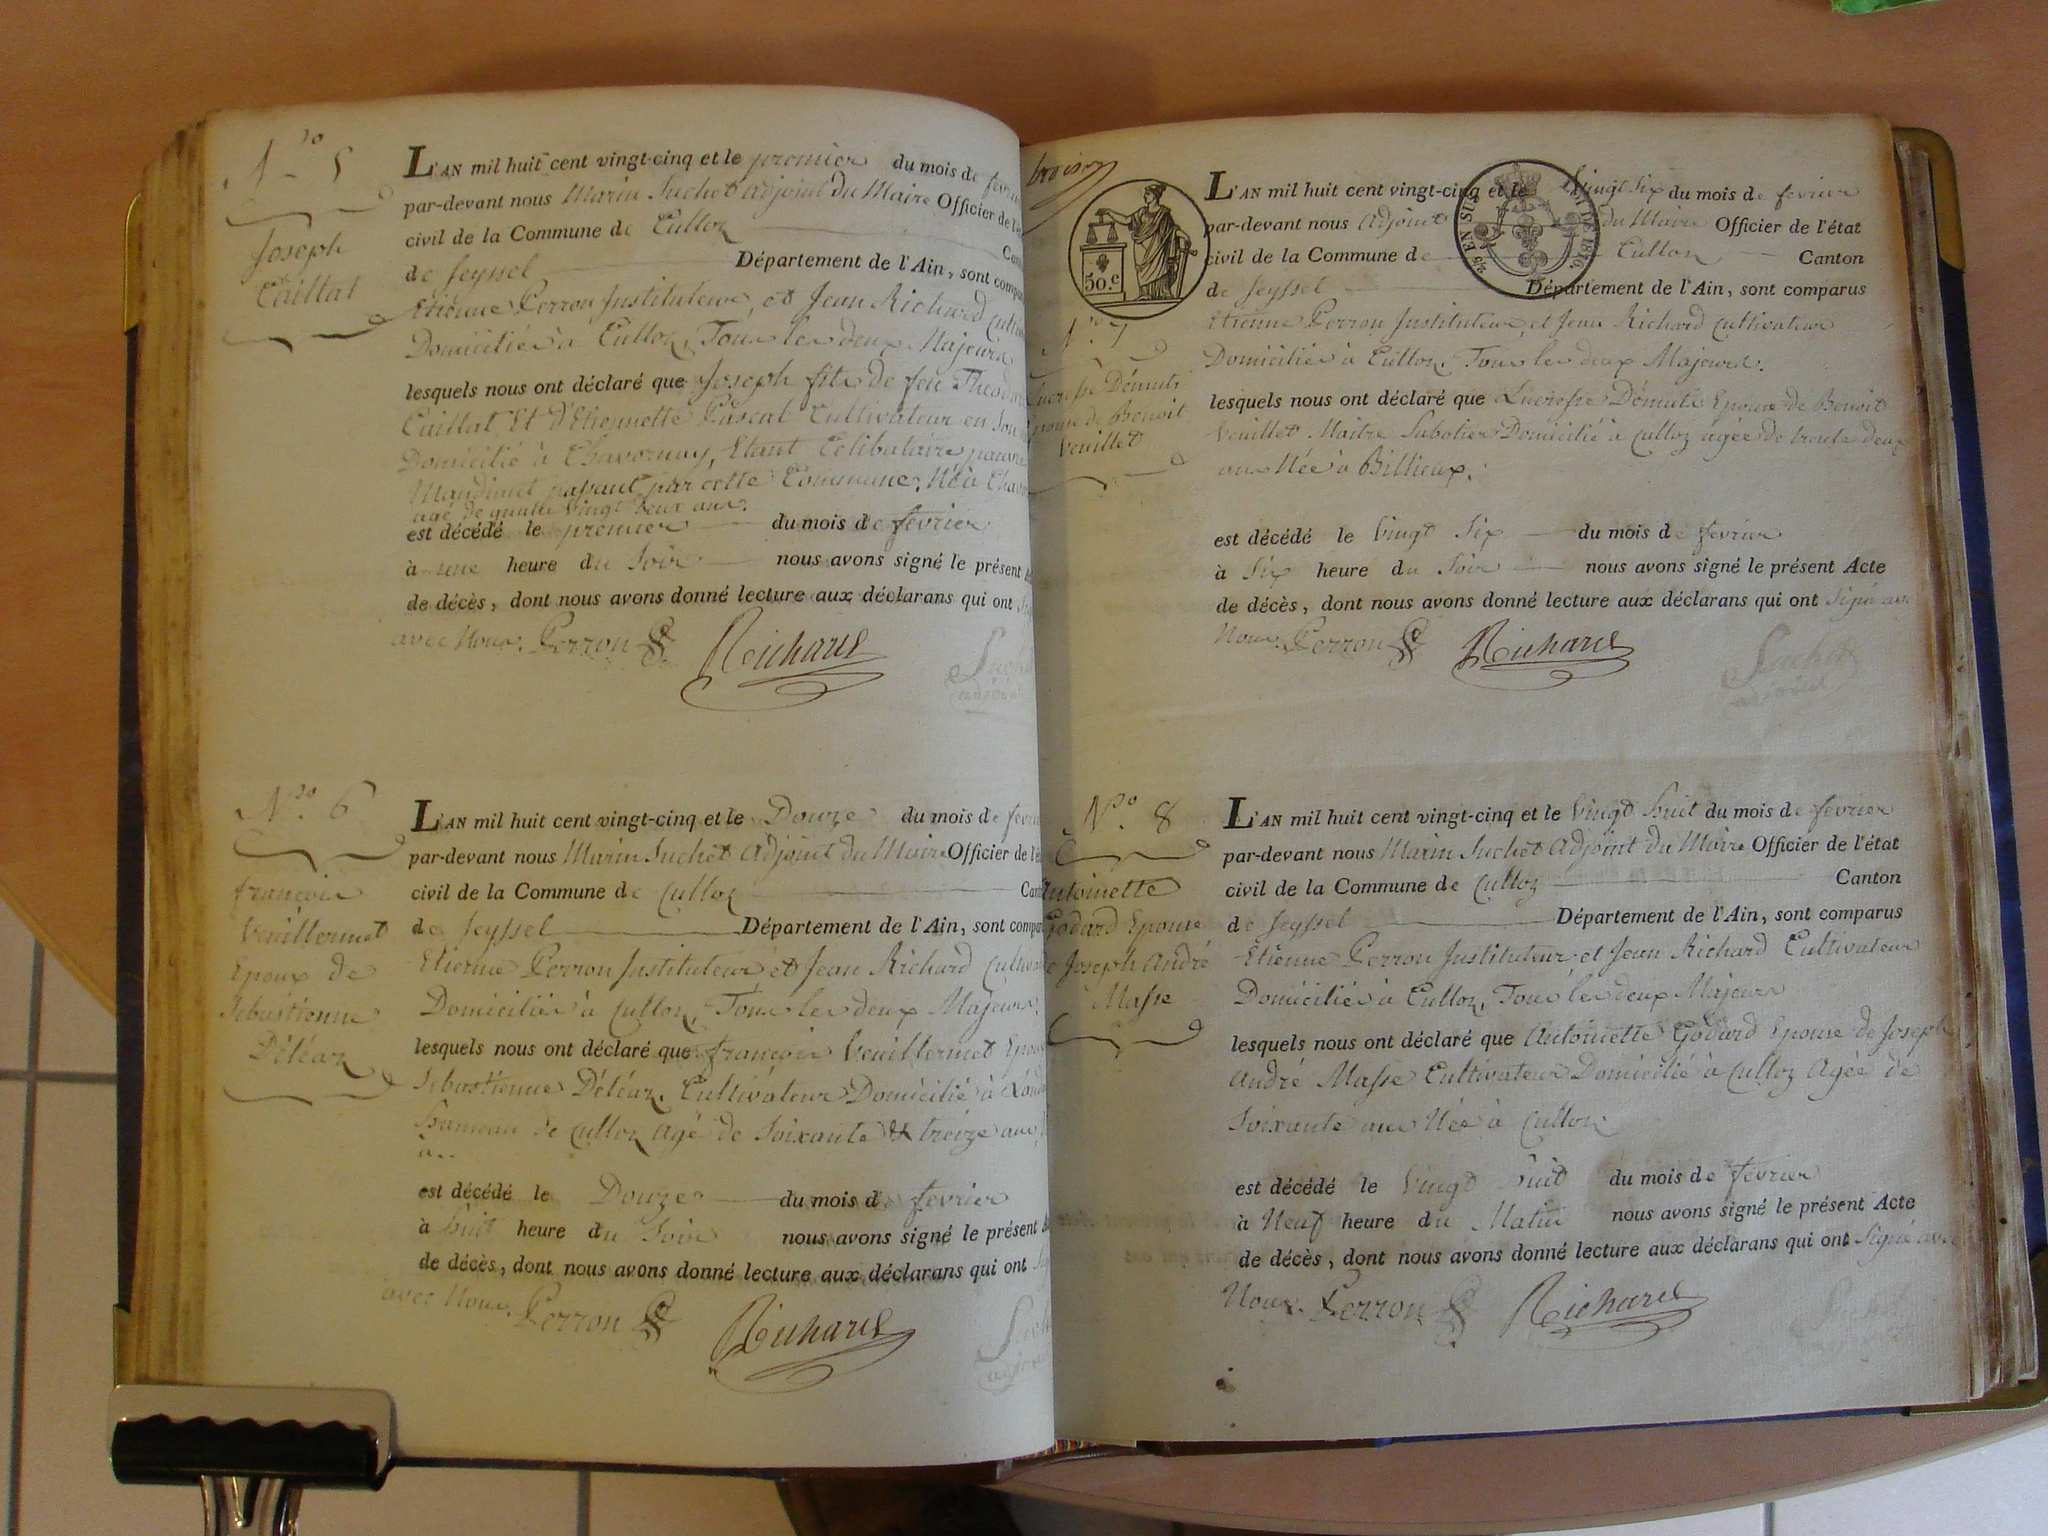 N.ro 5
Joseph
Caillat
L'AN mil huit cent vingt-cinq et le premier du mois de
par-devant nous Marin Suchet adjoint du Maire Officier de
civil de la Commune de Culloz
de Seyssel Département de l'Ain, sont
Etienne Perron Instituteur, et Jean Richard
Domiciliés à Culloz, Tous les deux Majeurs
lesquels nous ont déclaré que Joseph fils de feu
Caillat Et d'Etiennette Pascal Cultivateur en son
Domicilié à Chavornay, Etant Celibataire pauvre
Mandiant passant par cette Commune, Né à
agé de quatre vingt deux ans.
est décédé le premier du mois de fevrier
à une heure du Soir nous avons signé le présent
de décès, dont nous avons donné lecture aux déclarans qui ont
avec Nous. Perron Richard
N.ro 6
françois
Veuillermet
Epoux de
Sebastienne
Déléaz
L'AN mil huit cent vingt-cinq et le Douze du mois de
par-devant nous Marin Suchet adjoint du Maire Officier de
civil de la Commune de Culloz
de Seyssel Département de l'Ain, sont
Etienne Perron Instituteur et Jean Richard
Domiciliés à Culloz, Tous les deux Majeurs
lesquels nous ont déclaré que françois Veuillermet
Sebastienne Déléaz. Cultivateur Domicilié à
hameau de Culloz agé de Soixante & treize ans
à..
est décédé le Douze du mois de fevrier
à huit heure du Soir nous avons signé le présent
de décès, dont nous avons donné lecture aux déclarans qui ont
avec Nous. Perron Richard
50.c
EN SUS
LOI DE 1816.
N.ro 7
Epouse de Benoit
Veuillet
L'AN mil huit cent vingt-cinq et le Vingt Six du mois de fevrier
par-devant nous Adjoint du Maire Officier de l'état
civil de la Commune de Culloz Canton
de Seyssel Département de l'Ain, sont comparus
Etienne Perron Instituteur, et Jean Richard Cultivateur
Domiciliés à Culloz. Tous les deux Majeurs.
lesquels nous ont déclaré que Lucresse Epouse de Benoit
Veuillet Maitre Sabotier Domicilié à Culloz agée de trente deux
ans Née à Billieux.
est décédé le Vingt Six du mois de fevrier
à Six heure du Soir nous avons signé le présent Acte
de décès, dont nous avons donné lecture aux déclarans qui ont Signé
Nous. Perron Richard Suchet
adjoint
N.ro 8
Antoinette
Godard Epouse
Joseph André
Masse
L'AN mil huit cent vingt-cinq et le Vingt huit du mois de fevrier
par-devant nous Marin Suchet Adjoint du Maire Officier de l'état
civil de la Commune de Culloz Canton
de Seyssel Département de l'Ain, sont comparus
Etienne Perron Instituteur, et Jean Richard Cultivateur
Domiciliés à Culloz, Tous les deux Majeurs
lesquels nous ont déclaré que Antoinette Godard Epouse de Joseph
André Masse Cultivateur Domicilié à Culloz Agée de
Soixante ans Née à Culloz
est décédé le Vingt huit du mois de fevrier
à Neuf heure du Matin nous avons signé le présent Acte
de décès, dont nous avons donné lecture aux déclarans qui ont Signé avec
Nous. Perron Richard